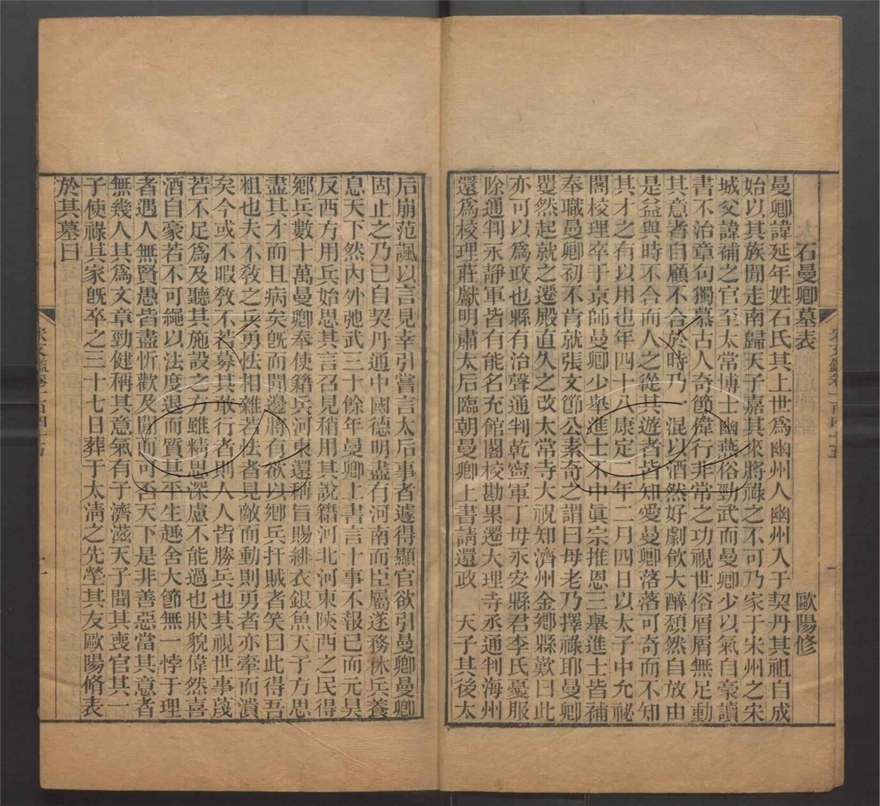 石曼卿墓表 歐陽修
曼卿諱延年姓石氏其上世為幽州人幽州入于契丹其祖自成
始以其族閒走南歸天子嘉其來將祿之不可乃家于宋州之宋
城父諱補之官至太常博士幽燕俗勁武而曼卿少以氣自豪讀
書不治章句獨慕古人奇節偉行非常之功視世俗屑屑無足動
其意者自顧不合於時乃一混以酒然好劇飲大醉頹然自放由
是益與時不合而人之從其遊者皆知愛曼卿落落可奇而不知
其才之有以用也年四十八康定二年二月四日以太子中允祕
閣校理卒于京師曼卿少舉進士不中真宗推恩三舉進士皆補
奉職曼卿初不肯就張文節公素奇之謂曰母老乃擇祿耶曼卿
矍然起就之遷殿直久之改太常寺大祝知濟州金鄉縣歎曰此
亦可以為政也縣有治聲通判乾寧軍丁母永安縣君李氏憂服
除通判永靜軍皆有能名充館閣校勘累遷大理寺丞通判海州
還為校理莊獻明肅太后臨朝曼卿上書請還政 天子其後太
后崩范諷以言見幸引嘗言太后事者遽得顯官欲引曼卿曼卿
固止之乃已自契丹通中國德明盡有河南而臣屬遂務休兵養
息天下然內外弛武三十餘年曼卿上書言十事不報已而元昊
反西方用兵始思其言召見稍用其說籍河北河東陝西之民得
鄉兵數十萬曼卿奉使籍兵河東還稱旨賜緋衣銀魚天子方思
盡其才而且病矣旣而聞邊將有欲以鄉兵扞賊者笑曰此得吾
粗也夫不敎之兵勇怯相雜若怯者見敵而動則勇者亦牽而潰
矣今或不暇敎不若募其敢行者則人人皆勝兵也其視世事蔑
若不足為及聽其施設之方雖精思深慮不能過也狀貌偉然喜
酒自豪若不可繩以法度退而質其平生趣舍大節無一悖于理
者遇人無賢愚皆盡忻歡及閒而可否天下是非善惡當其意者
無幾人其為文章勁健稱其意氣有子濟滋天子聞其喪官其一
子使祿其家旣卒之三十七日葬于太清之先塋其友歐陽脩表
於其墓曰
宋文鑑卷一百四十五
宋文鑑卷一百四十五